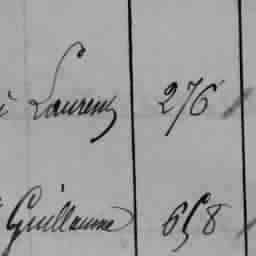 Laurent 276
Guillaume 658